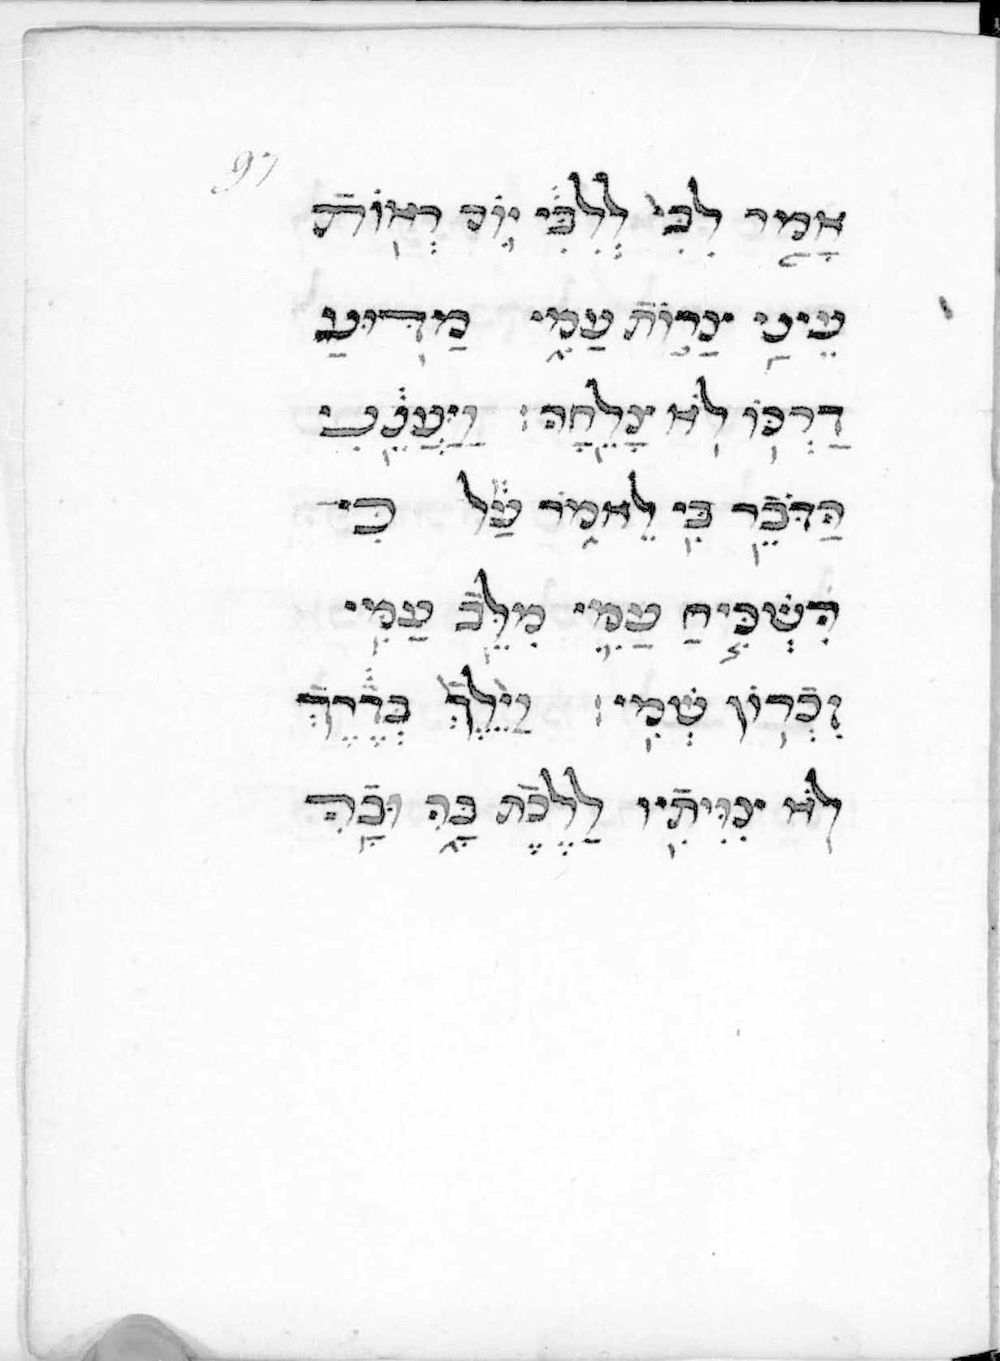 97
אָמַר לִבִּי לְלִבִּי יוֹם רְאוֹת
עֵינַי צָרוֹת עַמִּי מַדּוּעַ
דַרְכּוֹ לֹא צָלֵחָה: וַיַּעֲנֵנִי
הַדֹּבֵר בִּי לֵאמֹר עַל כִּי
הִשְׁכִּיחַ עַמִּי מִלֵּב עַמִּי
זִכְרוֹן שְׁמִי: וַיֵּלֶךְ בְּדֶרֶךְ
לֹא צִוִּיתִיו לָלֶכֶת בָּהּ וּבָהּ